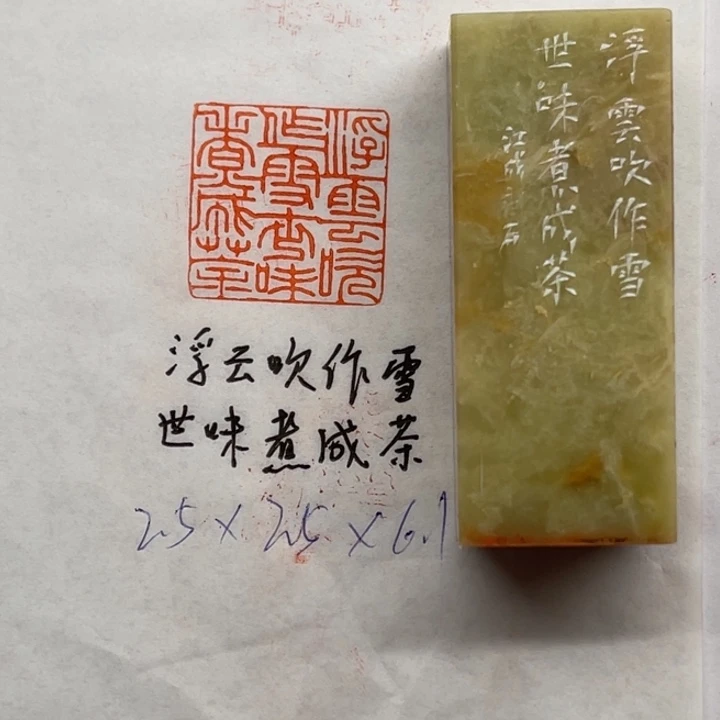 浮雲吹
作雪世味
煮成茶
浮云吹作雪
世味煮成茶
2.5×2.5×6.1
浮雲吹作雪
世味煮成茶